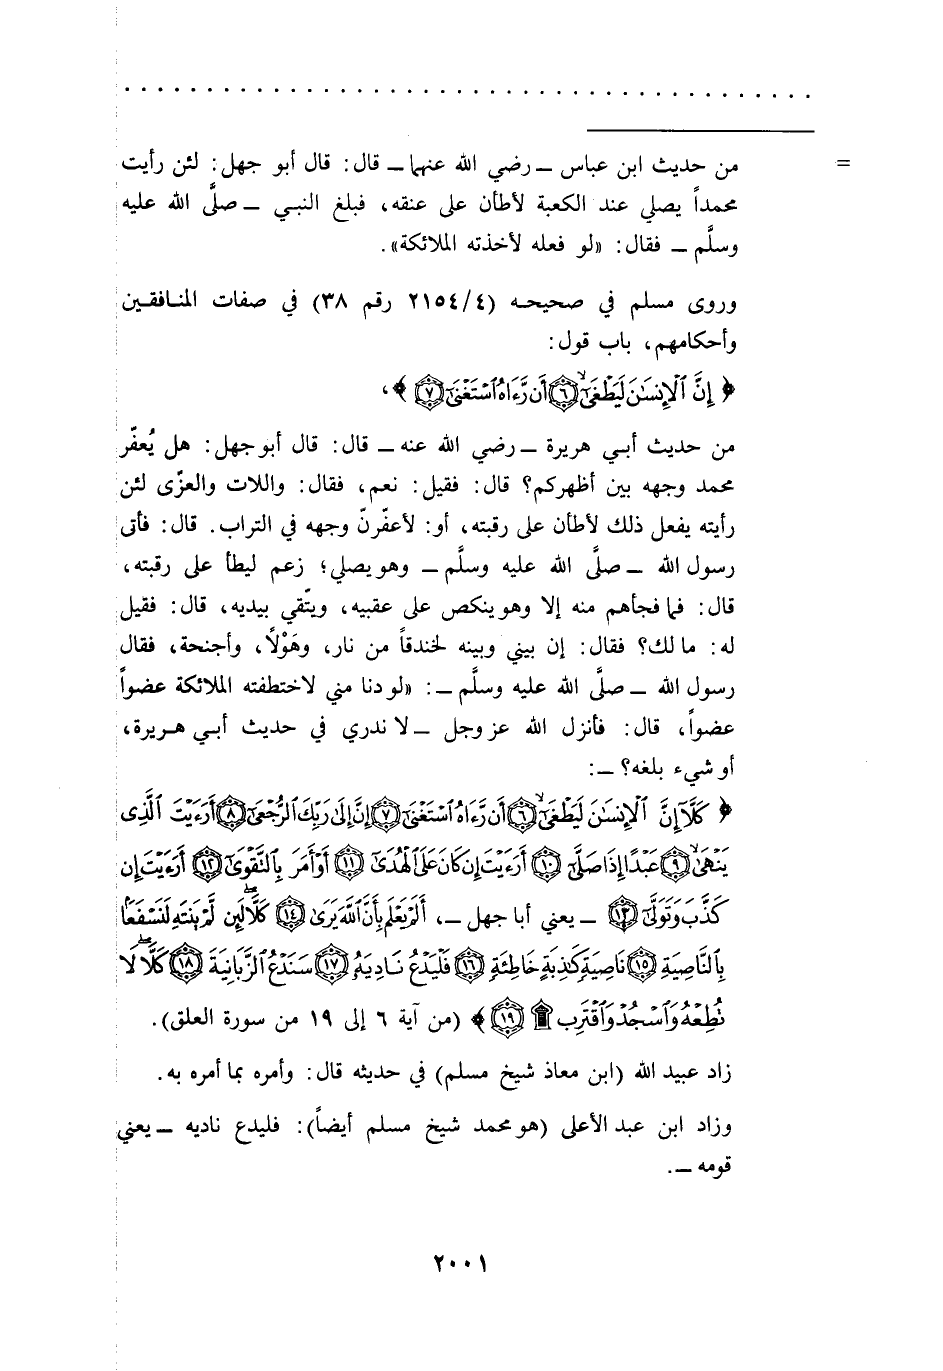 = من حديث ابن عباس – رضي الله عنهما – قال: قال أبو جهل: لئن رأيت
محمداً يصلي عند الكعبة لأطأن على عنقه، فبلغ النبي – صلَّى الله عليه
وسلَّم – فقال: «لو فعله لأخذته الملائكة».
وروى مسلم في صحيحه (٢١٥٤/٤ رقم ٣٨) في صفات المنافقين
وأحكامهم، باب قول:
﴿ إِنَّ ٱلْإِنسَٰنَ لَيَطْغَىٰٓ ۙ ٦ أَن رَّءَاهُ ٱسْتَغْنَىٰٓ ٧ ﴾،
من حديث أبي هريرة – رضي الله عنه – قال: قال أبو جهل: هل يُعفّر
محمد وجهه بين أظهركم؟ قال: فقيل: نعم، فقال: واللات والعزّى لئن
رأيته يفعل ذلك لأطأن على رقبته، أو: لأعفّرنّ وجهه في التراب. قال: فأتى
رسول الله – صلَّى الله عليه وسلَّم – وهو يصلي؛ زعم ليطأ على رقبته،
قال: فما فجأهم منه إلا وهو ينكص على عقبيه، ويتّقي بيديه، قال: فقيل
له: ما لك؟ فقال: إن بيني وبينه لخندقاً من نار، وهَوْلًا، وأجنحة، فقال
رسول الله – صلَّى الله عليه وسلَّم –: «لو دنا مني لاختطفته الملائكة عضواً
عضواً، قال: فأنزل الله عز وجل – لا ندري في حديث أبي هريرة،
أو شيء بلغه؟ –:
﴿ كَلَّآ إِنَّ ٱلْإِنسَٰنَ لَيَطْغَىٰٓ ۙ ٦ أَن رَّءَاهُ ٱسْتَغْنَىٰٓ ٧ إِنَّ إِلَىٰ رَبِّكَ ٱلرُّجْعَىٰٓ ٨ أَرَءَيْتَ ٱلَّذِى
يَنْهَىٰ ۙ ٩ عَبْدًا إِذَا صَلَّىٰٓ ١٠ أَرَءَيْتَ إِن كَانَ عَلَى ٱلْهُدَىٰٓ ١١ أَوْ أَمَرَ بِٱلتَّقْوَىٰٓ ١٢ أَرَءَيْتَ إِن
كَذَّبَ وَتَوَلَّىٰٓ ١٣ – يعني أبا جهل –، أَلَمْ يَعْلَم بِأَنَّ ٱللَّهَ يَرَىٰ ١٤ كَلَّا لَئِن لَّمْ يَنتَهِ لَنَسْفَعًۢا
بِٱلنَّاصِيَةِ ١٥ نَاصِيَةٍ كَٰذِبَةٍ خَاطِئَةٍ ١٦ فَلْيَدْعُ نَادِيَهُۥ ١٧ سَنَدْعُ ٱلزَّبَانِيَةَ ١٨ كَلَّا لَا
تُطِعْهُ وَٱسْجُدْ وَٱقْتَرِب ۩ ١٩ ﴾ (من آية ٦ إلى ١٩ من سورة العلق).
زاد عبيد الله (ابن معاذ شيخ مسلم) في حديثه قال: وأمره بما أمره به.
وزاد ابن عبد الأعلى (هو محمد شيخ مسلم أيضاً): فليدع ناديه – يعني
قومه –.
٢٠٠١